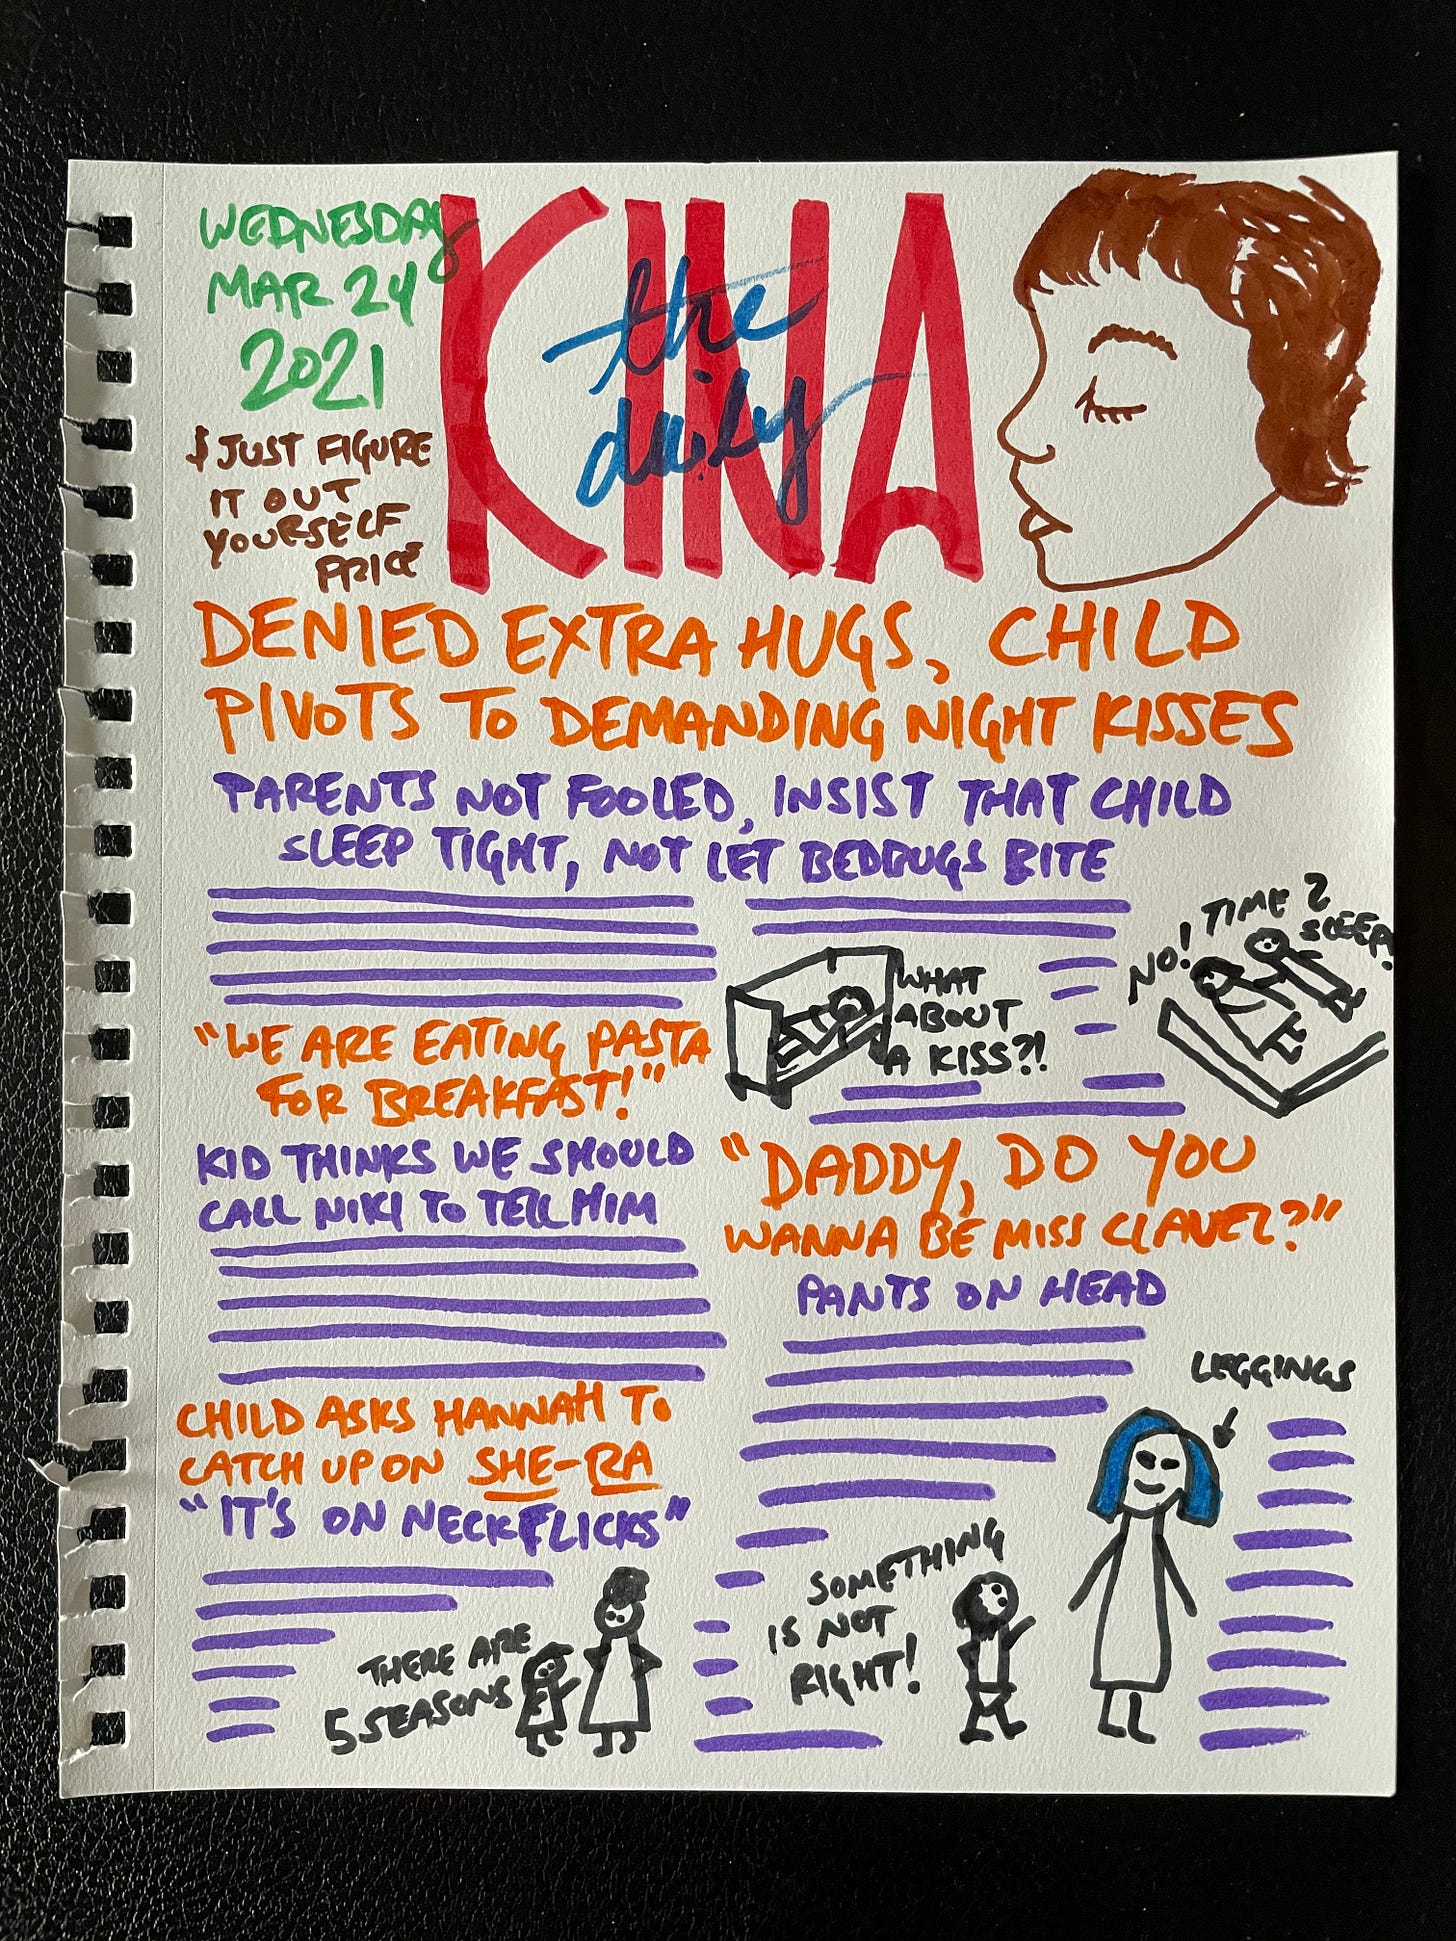 WEDNESDAY
MAR 24
2021
$ JUST FIGURE
IT OUT
YOURSELF
PRICE
KINA
the
daily
DENIED EXTRA HUGS, CHILD
PIVOTS TO DEMANDING NIGHT KISSES
PARENTS NOT FOOLED, INSIST THAT CHILD
SLEEP TIGHT, NOT LET BEDBUGS BITE
WHAT
ABOUT
A KISS?!
NO!
TIME 2
SLEEP!
"WE ARE EATING PASTA
FOR BREAKFAST!"
KID THINKS WE SHOULD
CALL NIKI TO TELL HIM
"DADDY, DO YOU
WANNA BE MISS CLAVEL?"
PANTS ON HEAD
LEGGINGS
SOMETHING
IS NOT
RIGHT!
CHILD ASKS HANNAH TO
CATCH UP ON SHE-RA
"IT'S ON NECKFLICKS"
THERE ARE
5 SEASONS